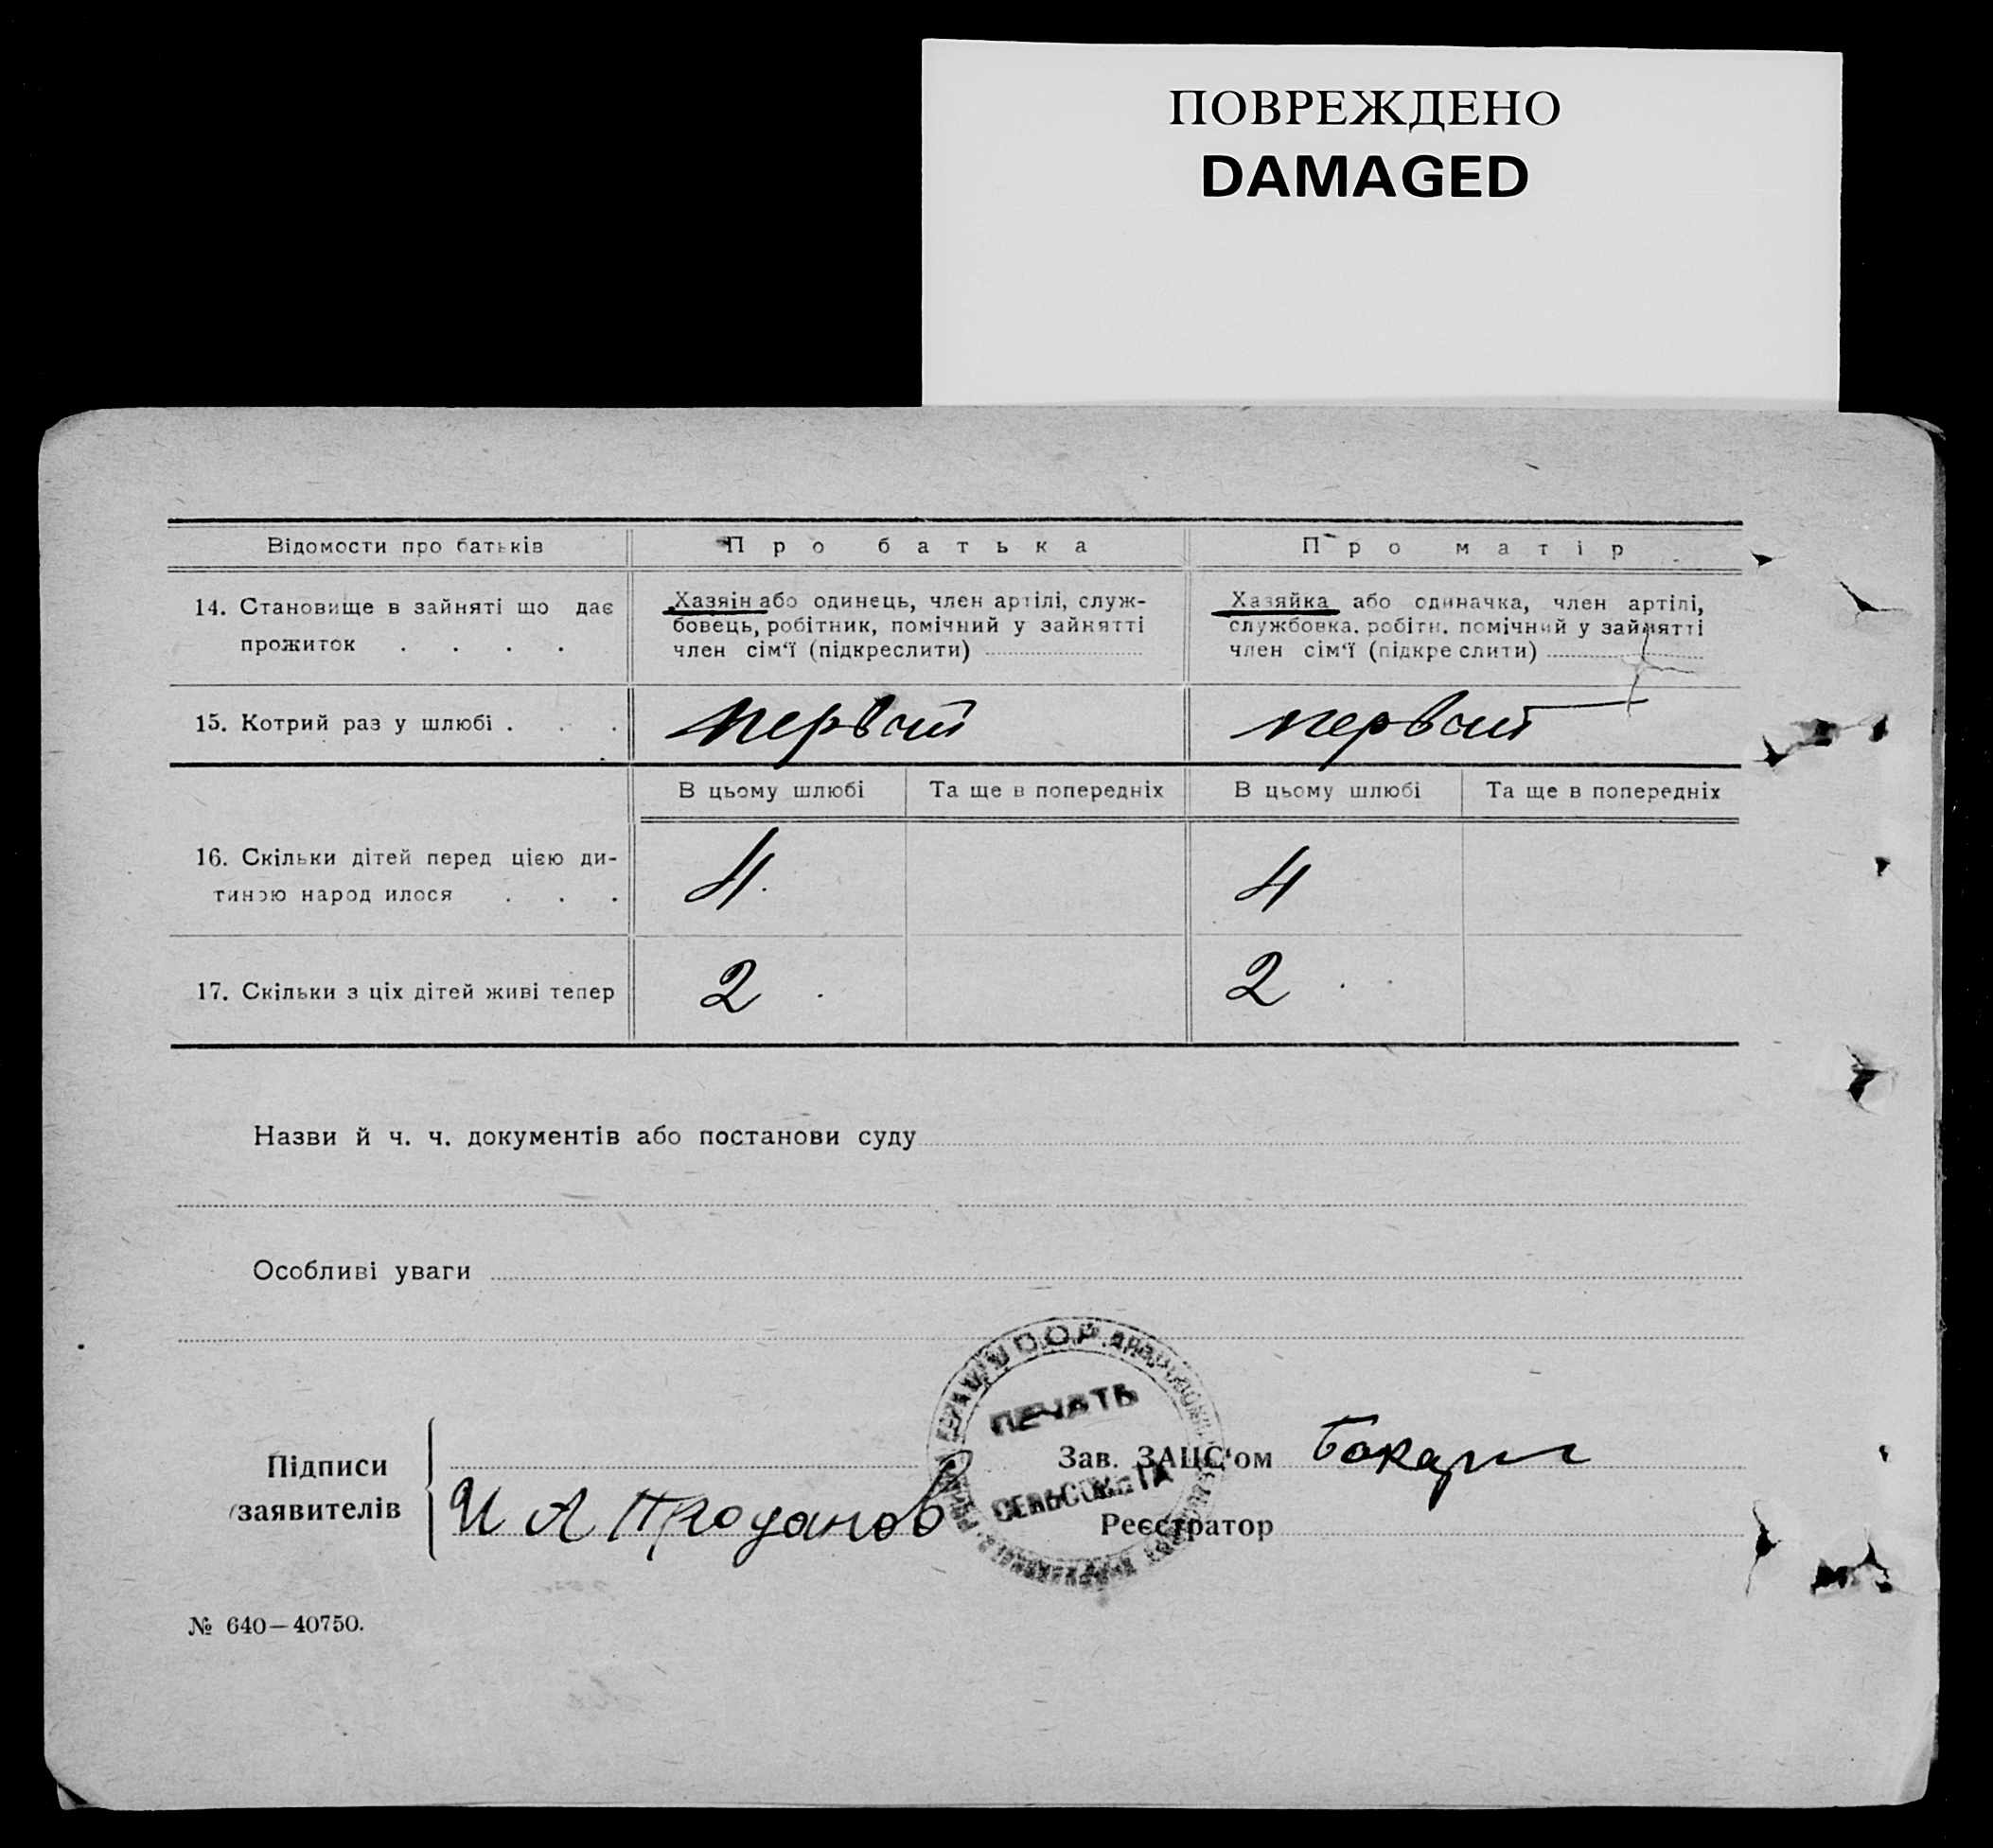 ПОВРЕЖДЕНО
DAMAGED
Відомости про батьків
Про батька
Про матір
14. Становище в зайняті що дає
прожиток . . . .
Хазяін або одинець, член артілі, служ-
бовець, робітник, помічний у зайнятті
член сім'ї (підкреслити)
Хазяйка або одиначка, член артілі,
службовка. робітн. помічний у зайнятті
член сім'ї (підкреслити)
15. Котрий раз у шлюбі . . .
первый
первый
В цьому шлюбі
Та ще в попередніх
В цьому шлюбі
Та ще в попередніх
16. Скільки дітей перед цією ди-
тиною народилося . . .
4
4
17. Скільки з ціх дітей живі тепер
2
2
Назви й ч. ч. документів або постанови суду
Особливі уваги
ПЕЧАТЬ
СЕЛЬСОВЕТА
Підписи
заявителів
И А Проданов
Зав. ЗАЦС'ом
Реєстратор
№ 640—40750.